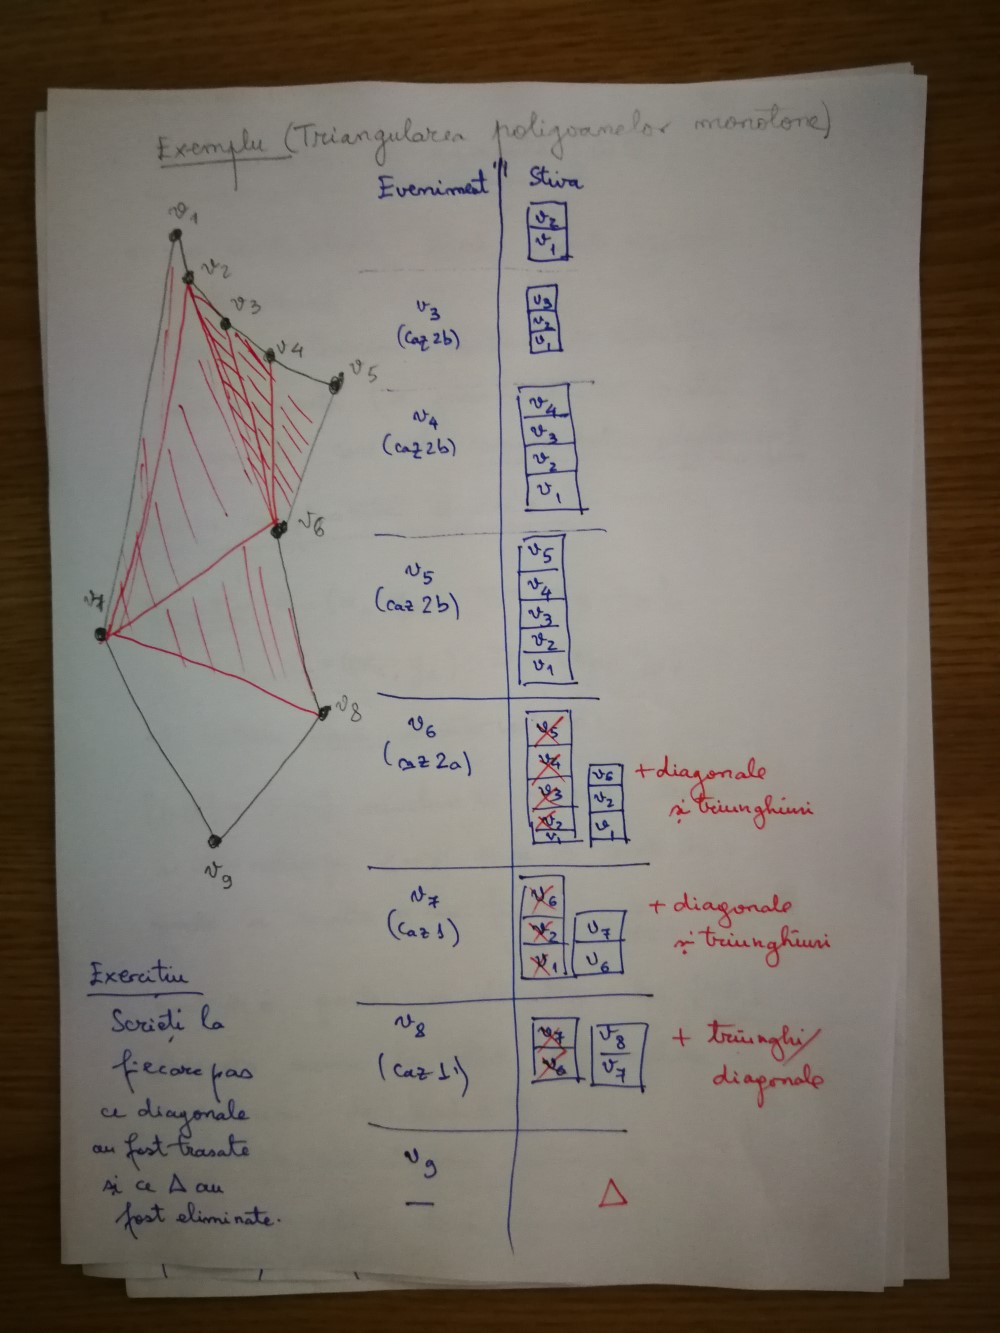 Exemplu (Triangularea poligoanelor monotone)
Eveniment Stiva
v1
v2
v3
v4
v5
v6
v7
v8
v9
v2
v1
v3
(caz 2b)
v3
v2
v1
v4
(caz 2b)
v4
v3
v2
v1
v5
(caz 2b)
v5
v4
v3
v2
v1
v6
(caz 2a)
v5
v4
v3
v2
v1
v6
v2
v1
+ diagonale
și triunghiuri
v7
(caz 1)
v6
v2
v1
v7
v6
+ diagonale
și triunghiuri
v8
(caz 1')
v7
v6
v8
v7
+ triunghi/
diagonale
v9
—
Δ
Exercitiu
Scrieți la
fiecare pas
ce diagonale
au fost trasate
și ce Δ au
fost eliminate.